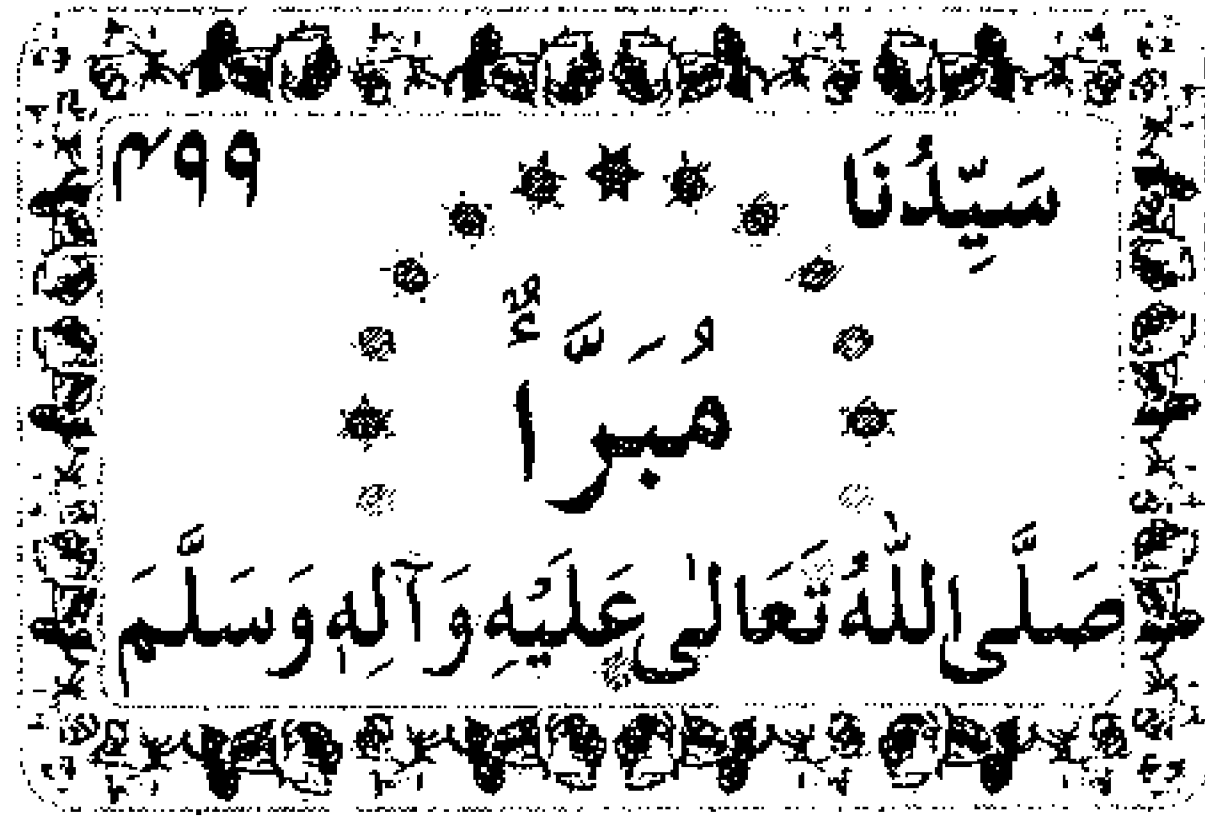 سَيِّدُنَا
۴۹۹
مُبَرَّأٌ
صَلَّى اللّٰهُ تَعَالٰى عَلَيْهِ وَآلِهٖ وَسَلَّمَ